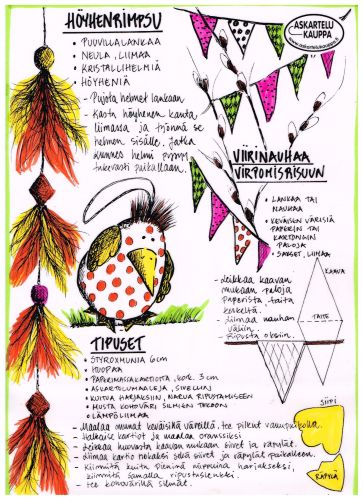 HÖYHENRIMPSU
• PUUVILLALANKAA
• NEULA, LIIMAA
• KRISTALLIHELMIÄ
• HÖYHENIÄ
- Pujota helmet lankaan
- Kasta höyhenen kanta
liimassa ja työnnä se
helmen sisälle. Jatka
kunnes helmi pysyy
tukevasti paikallaan.
ASKARTELU
KAUPPA
www.askartelukauppa.fi
VIIRINAUHAA
VIRPOMISRISUUN
• LANKAA TAI
NAUHAA
• KEVÄISEN VÄRISIÄ
PAPERIN TAI
KARTONGIN
PALOJA
• SAKSET, LIIMAA
- Leikkaa kaavan
mukaan paloja
paperista, taita
keskeltä.
Liimaa nauhan
väliin.
Ripusta oksiin.
KAAVA
TAITE
TIPUSET
• STYROXMUNIA 6cm
• HUOPAA
• PAPERIMASSAKARTIOITA, kork. 3 cm
• ASKARTELUMAALEJA, SIVELLIN
• KUITUA HARJAKSIIN, NARUA RIPUSTAMISEEN
• MUSTA KOHOVÄRI SILMIEN TEKOON
• LÄMPÖLIIMAA
- Maalaa munat keväisillä väreillä. tee pilkut vanupuikolla.
- Halkaise kartiot ja maalaa oranssiksi
- Leikkaa huovasta kaavan mukaan siivet ja räpylät.
- Liimaa kartio nokaksi sekä siivet ja räpylät paikalleen.
- Kiinnitä kuitu pieninä nippuina harjakseksi,
kiinnitä samalla ripustuslenkki.
- tee kohovärillä silmät.
SIIPI
RÄPYLÄ